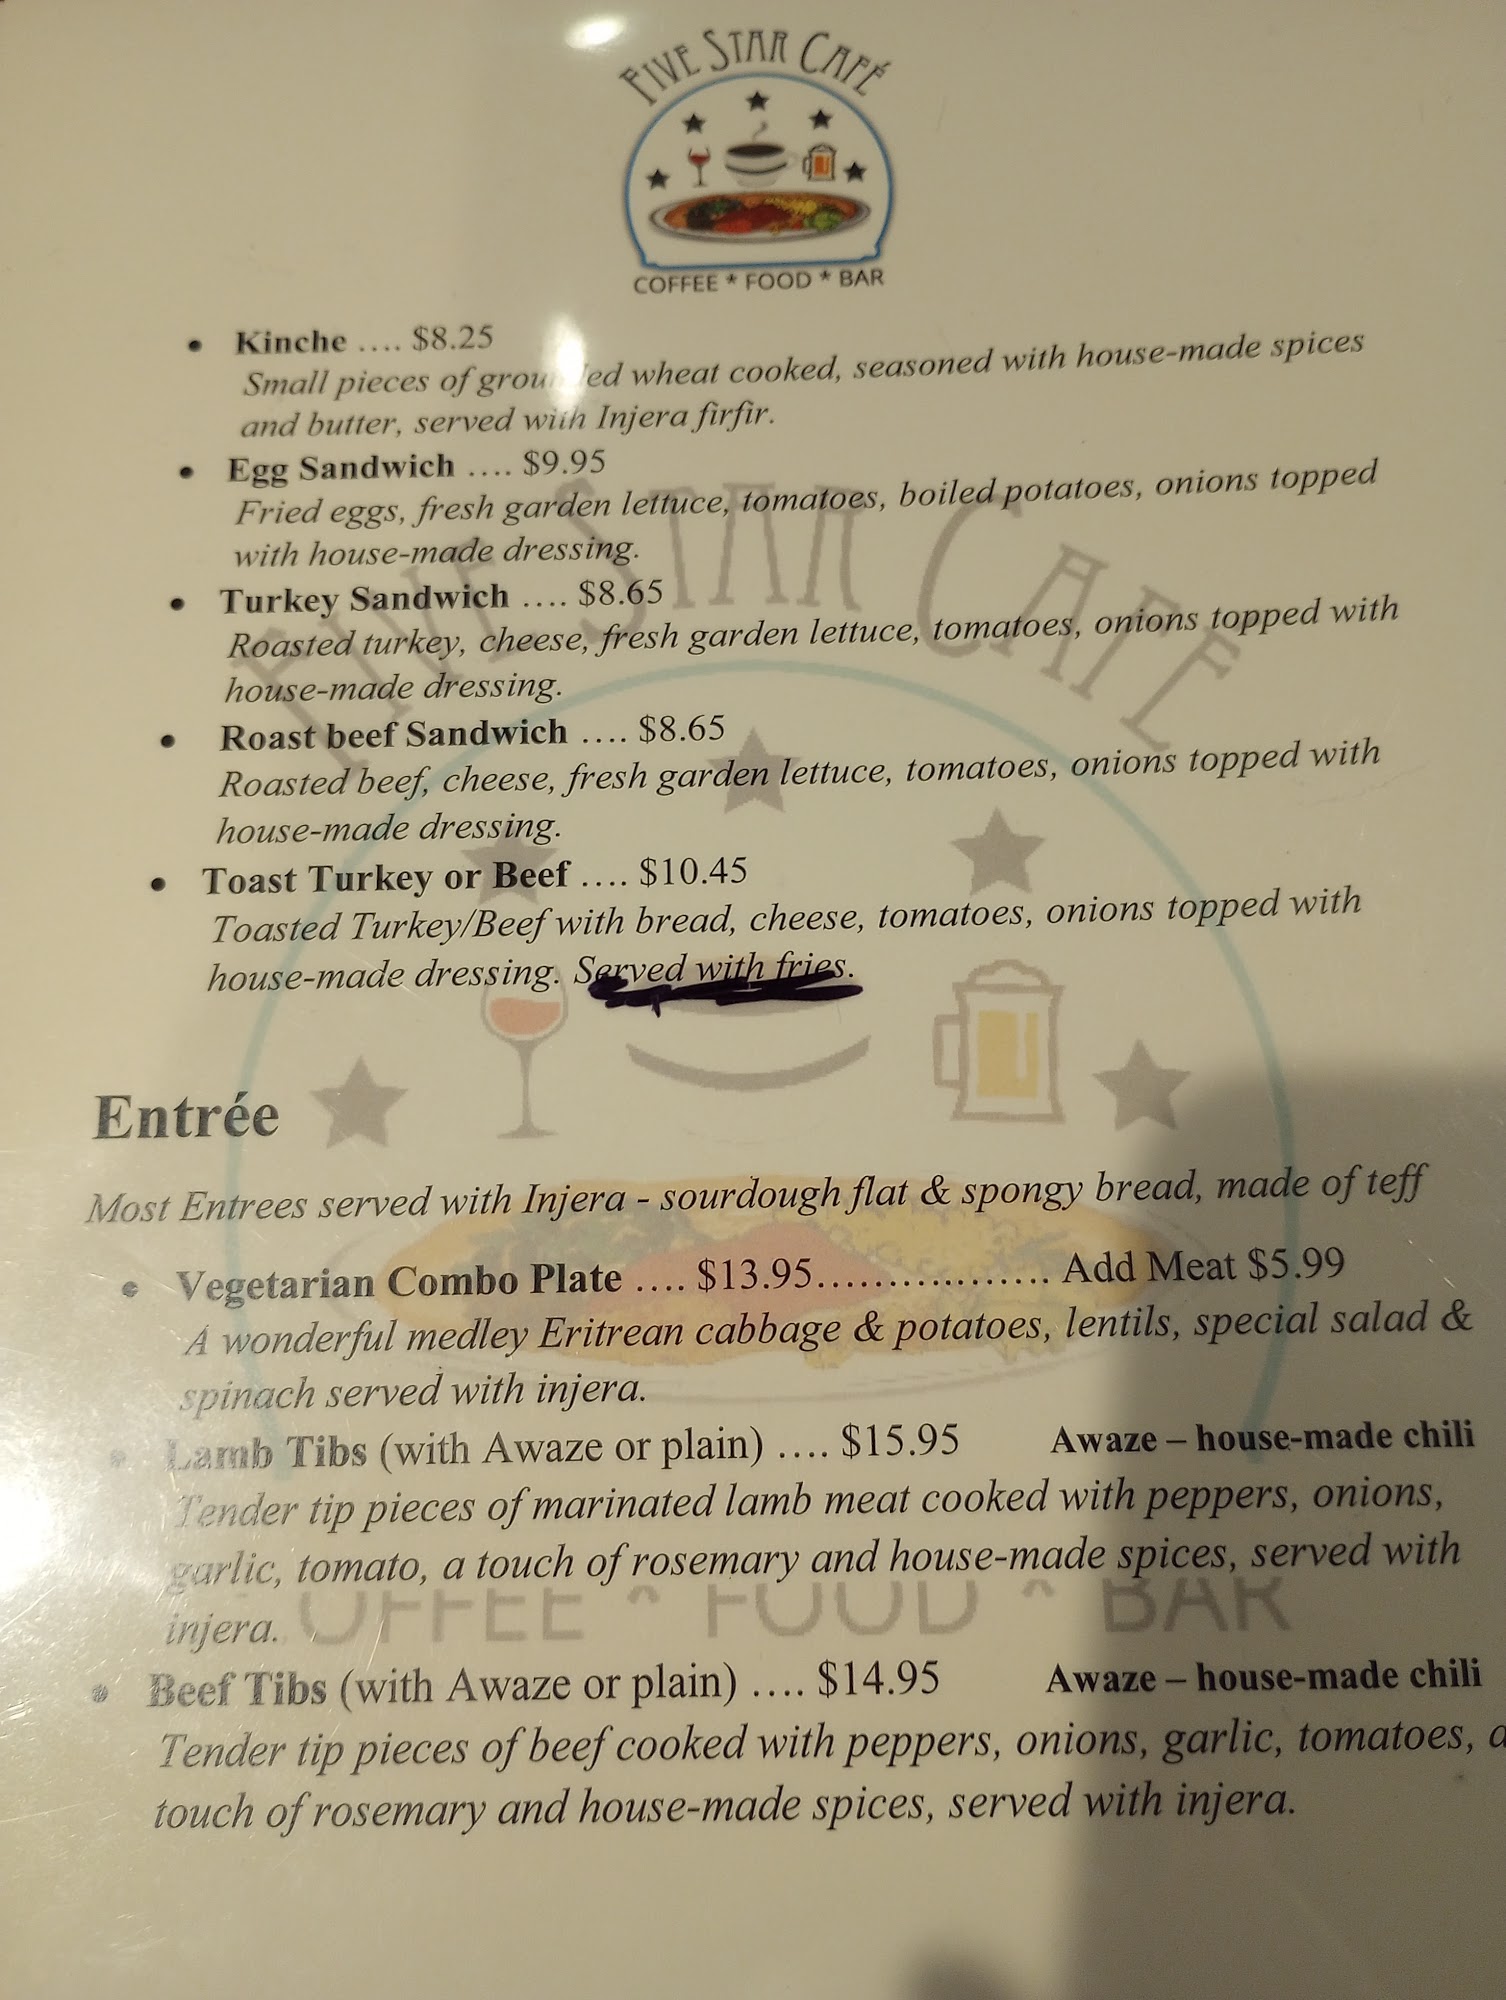 FIVE STAR CAFÉ
COFFEE * FOOD * BAR
• Kinche .... $8.25
Small pieces of grounded wheat cooked, seasoned with house-made spices
and butter, served with Injera firfir.
• Egg Sandwich .... $9.95
Fried eggs, fresh garden lettuce, tomatoes, boiled potatoes, onions topped
with house-made dressing.
• Turkey Sandwich .... $8.65
Roasted turkey, cheese, fresh garden lettuce, tomatoes, onions topped with
house-made dressing.
• Roast beef Sandwich .... $8.65
Roasted beef, cheese, fresh garden lettuce, tomatoes, onions topped with
house-made dressing.
• Toast Turkey or Beef .... $10.45
Toasted Turkey/Beef with bread, cheese, tomatoes, onions topped with
house-made dressing. Served with fries.
Entrée
Most Entrees served with Injera - sourdough flat & spongy bread, made of teff
• Vegetarian Combo Plate .... $13.95..................... Add Meat $5.99
A wonderful medley Eritrean cabbage & potatoes, lentils, special salad &
spinach served with injera.
• Lamb Tibs (with Awaze or plain) .... $15.95 Awaze – house-made chili
Tender tip pieces of marinated lamb meat cooked with peppers, onions,
garlic, tomato, a touch of rosemary and house-made spices, served with
injera.
• Beef Tibs (with Awaze or plain) .... $14.95 Awaze – house-made chili
Tender tip pieces of beef cooked with peppers, onions, garlic, tomatoes, a
touch of rosemary and house-made spices, served with injera.
FIVE STAR CAFE
OFFEE * FOOD * BAR